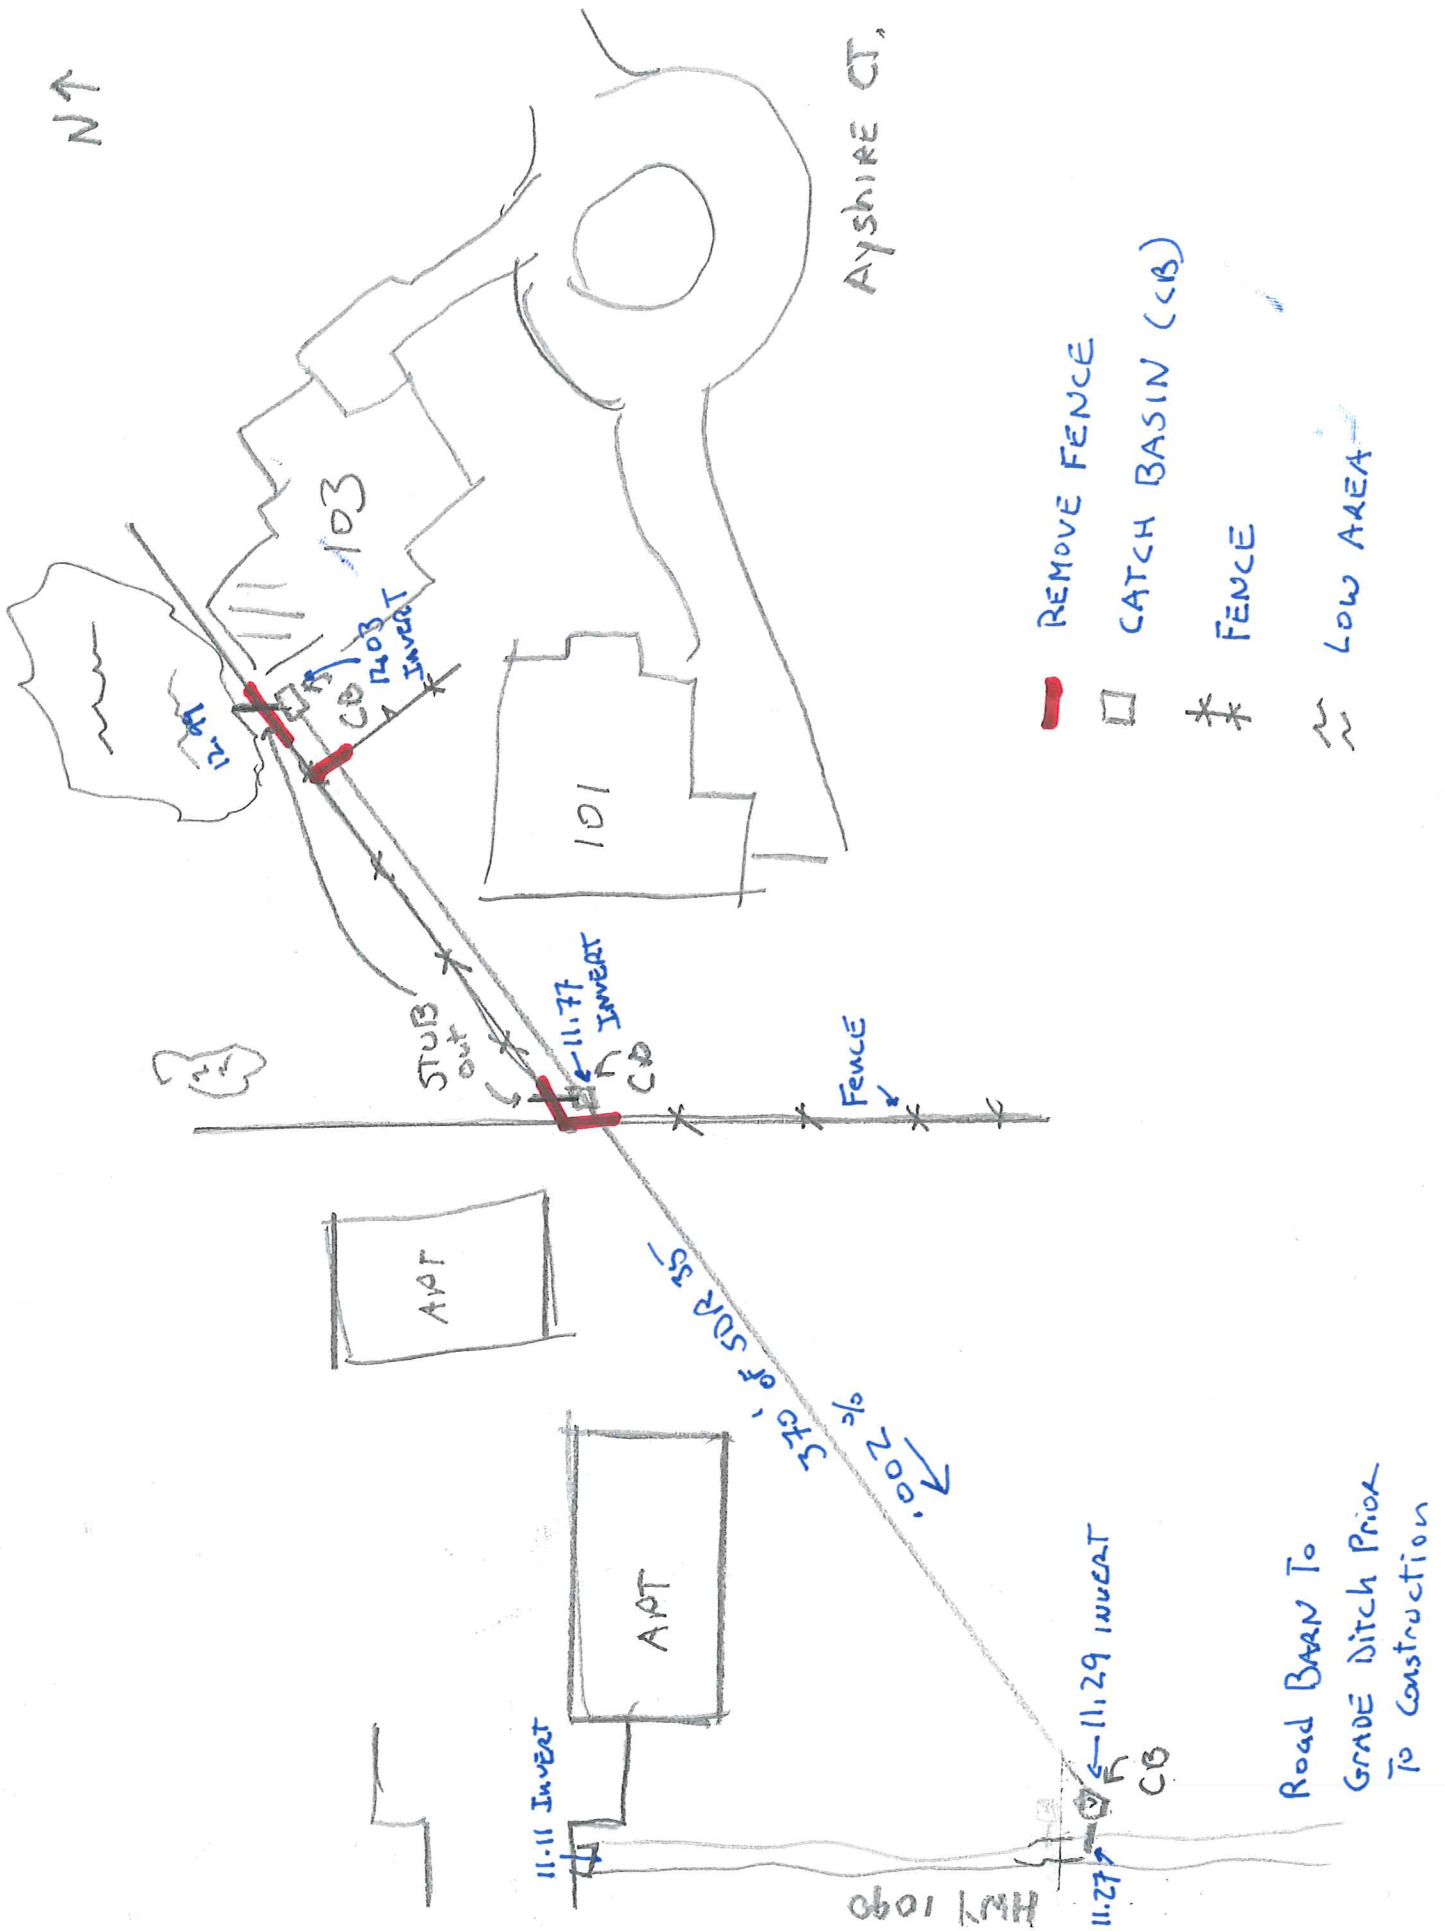 N
Ayshire CT.
103
12.99
12.03
INVERT
CB
101
STUB
out
11.77
INVERT
CB
Fence
APT
370' of SDR 35
.002 %
APT
11.11 INVERT
11.29 INVERT
CB
11.27
HWY 1090
REMOVE FENCE
CATCH BASIN (CB)
FENCE
LOW AREA
Road BARN To
GRADE Ditch Prior
To Construction